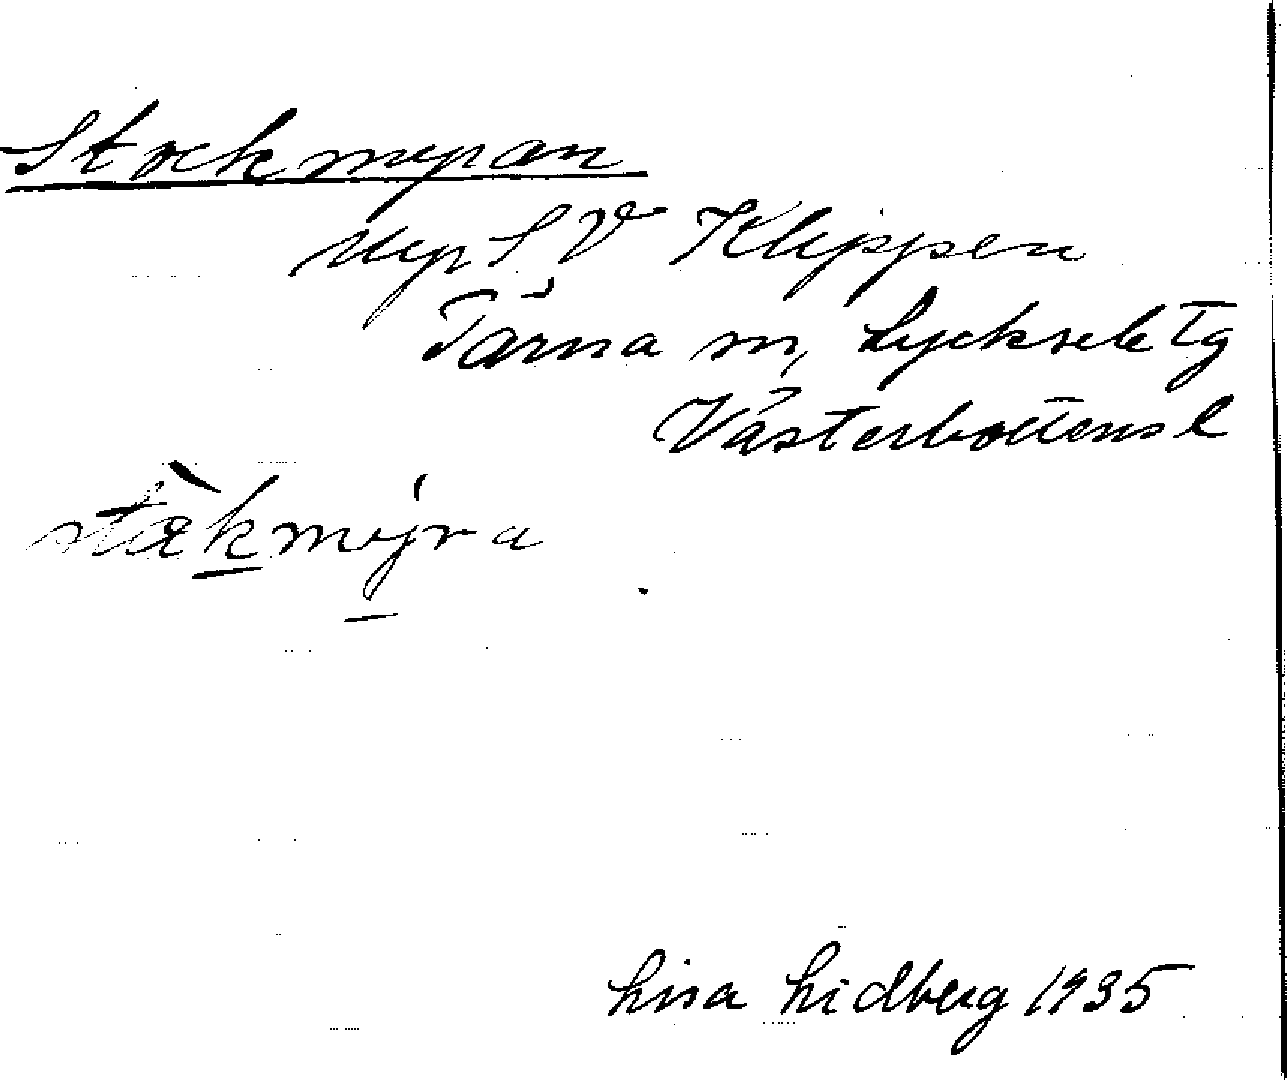 Stockmyran
Myr SV Klippen
Tärna sn, Lycksele Tg
Västerbottens l
stòkmýra
Lisa Lidberg 1935